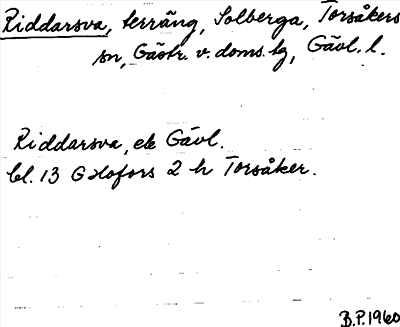 Riddarsva, terräng, Solberga, Torsåkers
sn, Gästr. v. doms. tg, Gävl. l.
Riddarsva, ek Gävl.
bl. 13 Hofors 2 h Torsåker.
B.P. 1960